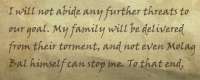 I will not abide any further threats to
our goal. My family will be delivered
from their torment, and not even Molag
Bal himself can stop me. To that end,